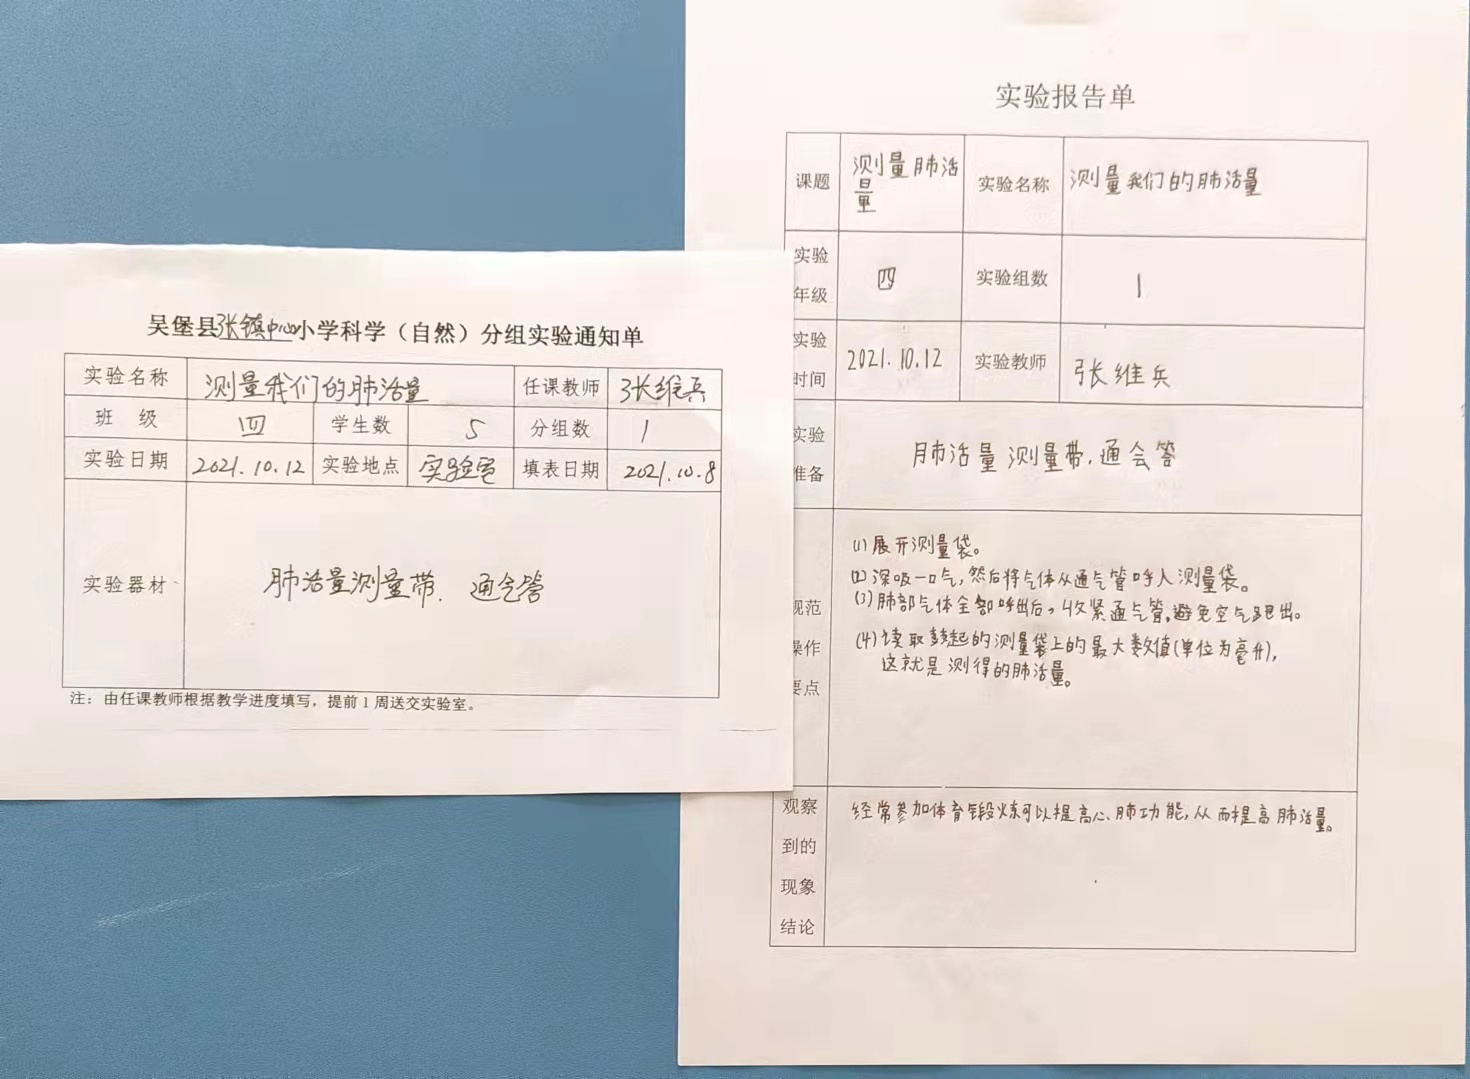 吴堡县张镇中心小学科学（自然）分组实验通知单
实验名称 测量我们的肺活量 任课教师 张维兵
班 级 四 学生数 5 分组数 1
实验日期 2021.10.12 实验地点 实验室 填表日期 2021.10.8
实验器材 肺活量测量带、通气管
注：由任课教师根据教学进度填写，提前1周送交实验室。
实验报告单
课题 测量肺活量 实验名称 测量我们的肺活量
实验年级 四 实验组数 1
实验时间 2021.10.12 实验教师 张维兵
实验准备 肺活量测量带、通会答
规范操作要点
(1)展开测量袋。
(2)深吸一口气,然后将气体从通气管呼入测量袋。
(3)肺部气体全部呼出后,收紧通气管,避免空气跑出。
(4)读取鼓起的测量袋上的最大数值(单位为毫升),
这就是测得的肺活量。
观察到的现象结论
经常参加体育锻炼可以提高心、肺功能,从而提高肺活量。